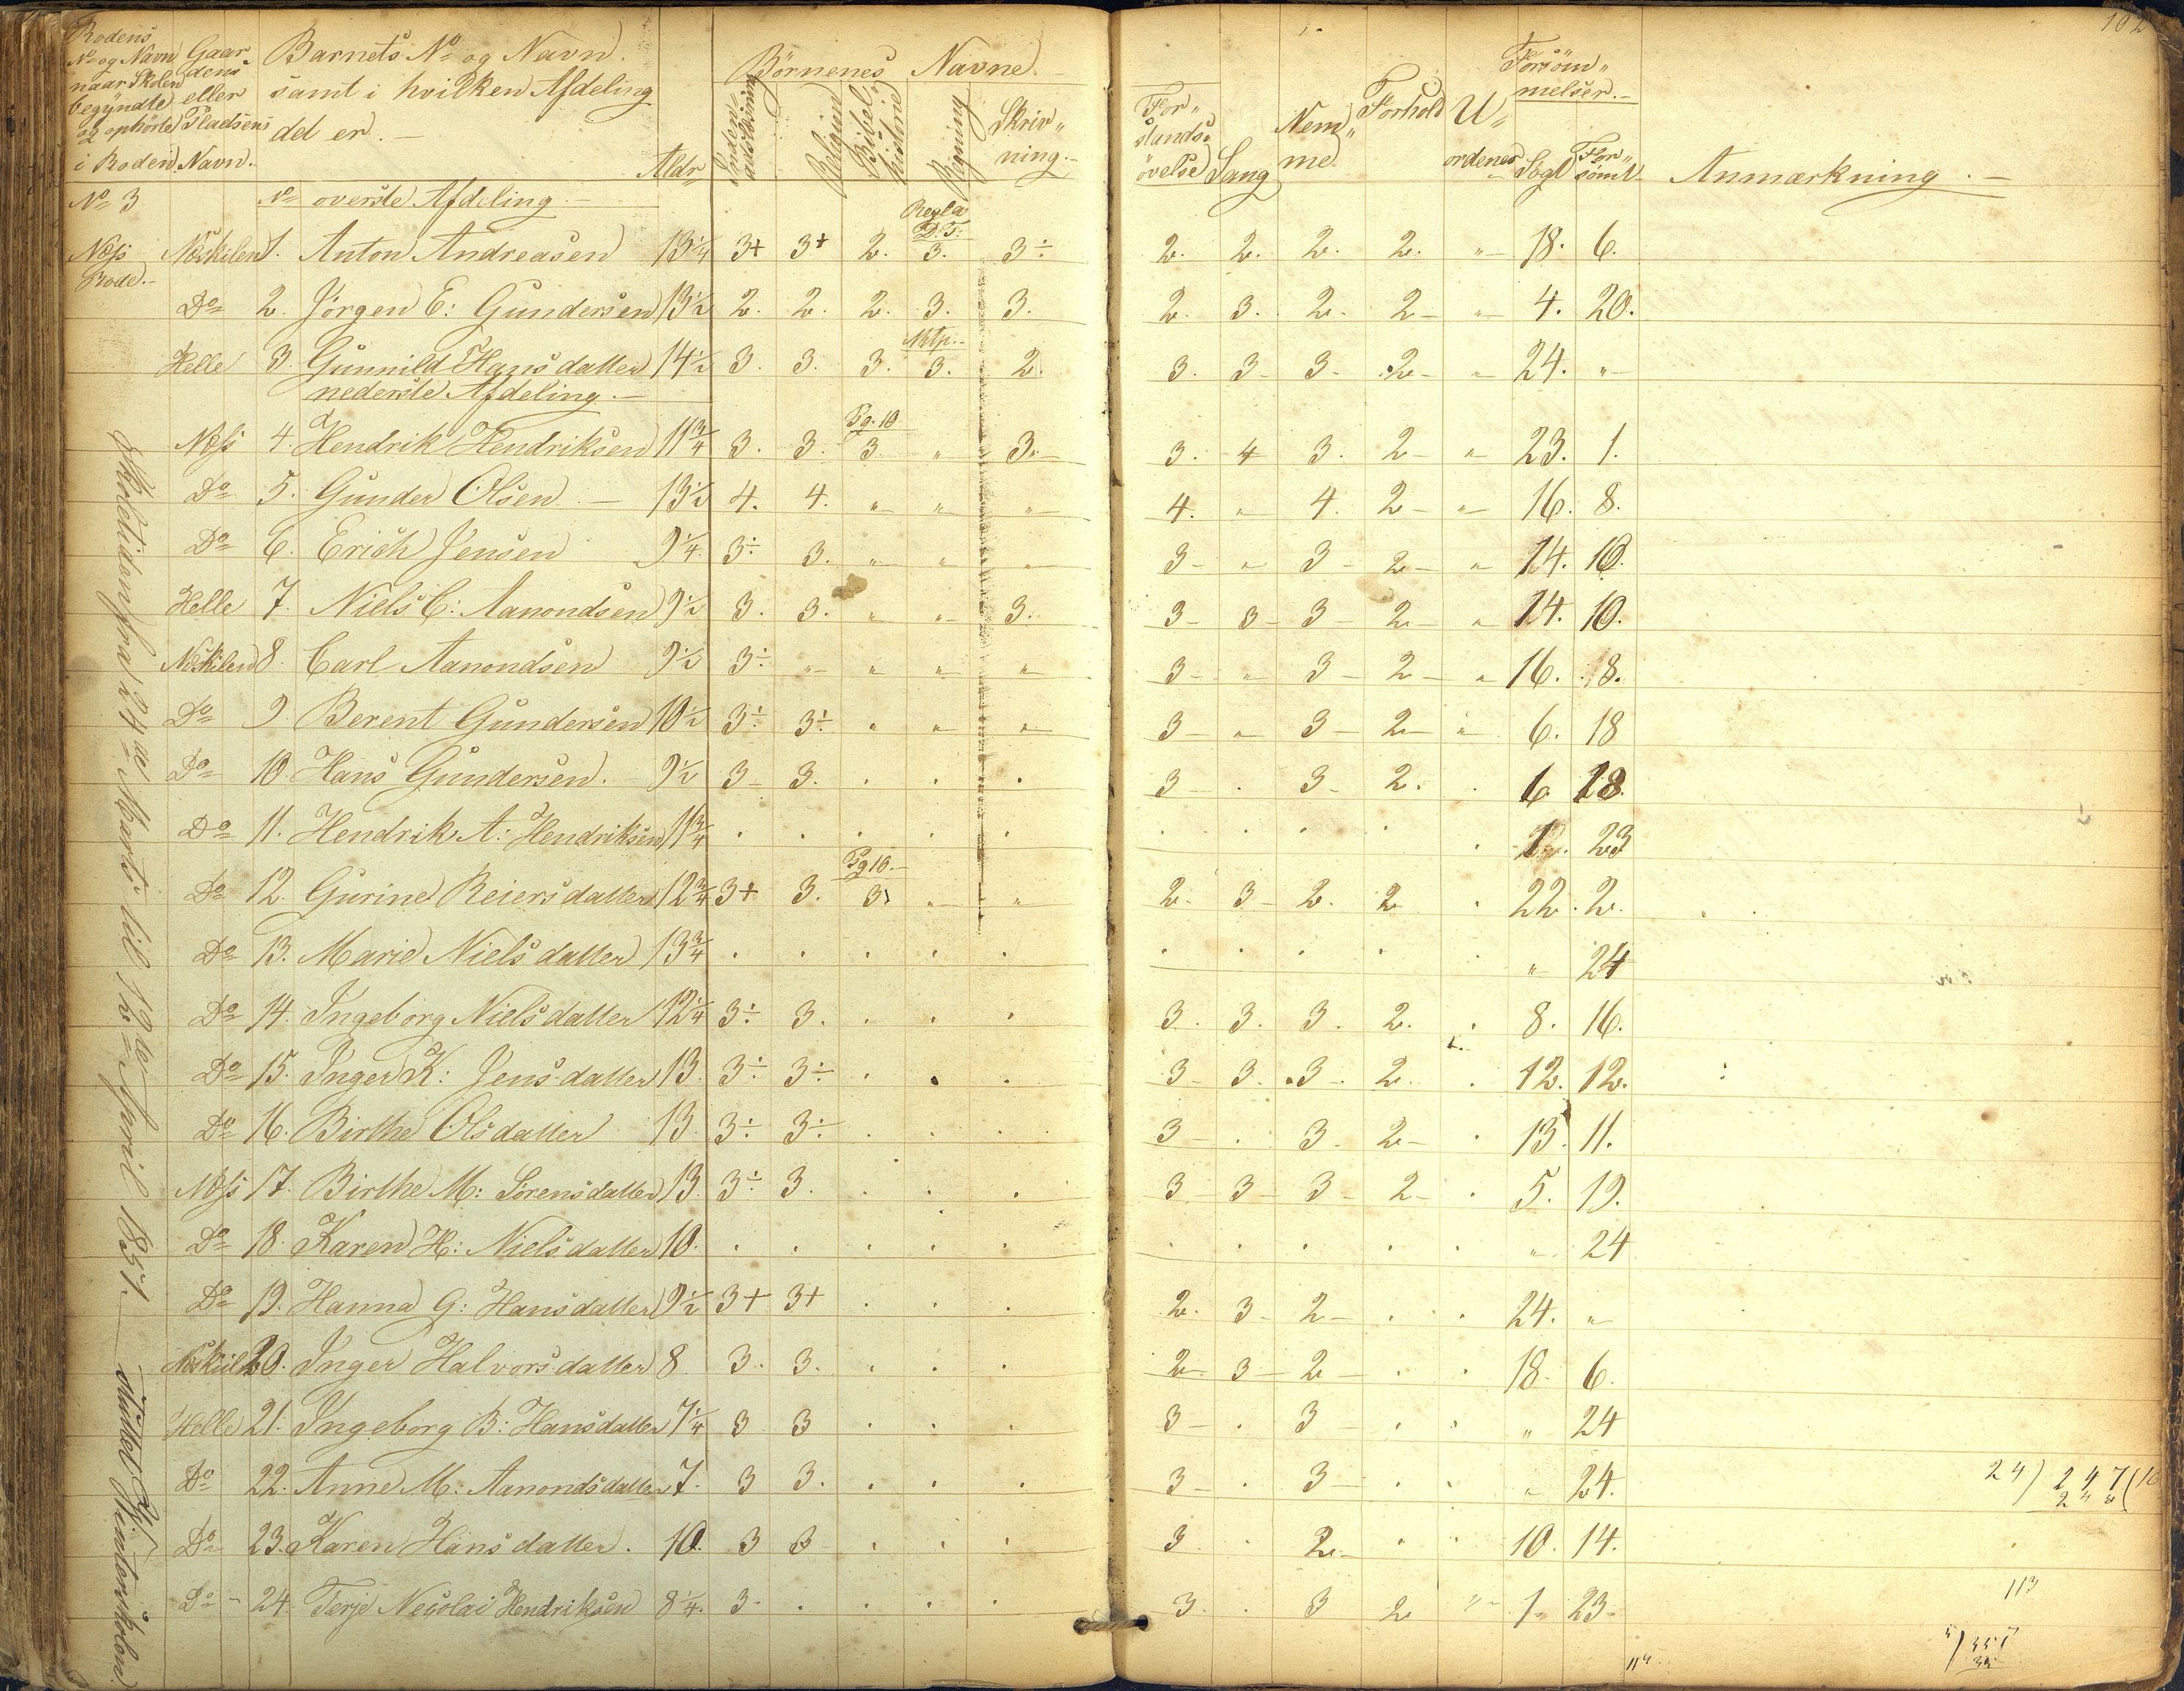 102
Rodens
No og Navn
naar Skolen
begyndte
og ophörte
i Roden
Gaar
dens
eller
Pladsens
Navn.
Barnets No og Navn
samt i hvilken Afdeling
det er. —
Aldr
Börnenes Navne. —
Religion
Bibel-
historie
Regning
Skriv„
ning. —
For„
stands.
övelse
Sang
Nem„
me
Forhold
U„
ordener
Forsöm„
melser. —
Sögt
For„
sömt
Anmærkning. —
No 3 No overste Afdeling. —
Regla
D. T.
Næss Næskilen 1. Anton Andreasen 13 1/4 3+ 3+ 2. 3. 3÷ 2. 2. 2. 2. „ 18. 6.
Rode. —
Do 2. Jörgen E: Gundersen 13 1/2 2. 2. 2. 3. 3. 2. 3. 2. 2 „ 4. 20.
Helle 3. Gunnild Hansdatter 14 1/2 3. 3. 3. 3. 2. 3. 3 3 2 „ 24. „
nederste Afdeling. —
Pg. 10
Næss 4. Hendrik Hendriksen 11 3/4 3. 3. 3 „ 3. 3. 4 3. 2 „ 23. 1.
Do 5. Gunder Olsen — 13 1/2 4. 4. „ „ „ 4. „ 4. 2 „ 16. 8.
Do 6. Erich Jensen 9 1/4 3÷ 3. „ „ „ 3 „ 3 2 „ 14. 10.
Helle 7. Niels C: Aanondsen 9 1/2 3. 3. „ „ 3. 3 3 3 2 „ 14. 10.
Næskilen 8. Carl Aanondsen 9 1/2 3÷ „ „ „ „ 3 „ 3 2 „ 16. 8.
Do 9. Berent Gundersen 10 1/2 3÷ 3÷ „ „ „ 3 „ 3 2 „ 6. 18
Do 10. Hans Gundersen. 9 1/2 3 3. . . . 3 . 3 2. . 6 18.
Do 11. Hendrik A: Hendriksen 11 3/4 . . . . . . . . . . 1. 23
Pg 10. —
Do 12. Gurine Reiersdatter 12 3/4 3+ 3. 3 „ „ 2. 3 2. 2 . 22. 2.
Do 13. Marie Nielsdatter 13 3/4 . . . . . . . . . „ 24
Do 14. Ingeborg Nielsdatter 12 1/4 3÷ 3. . . . 3. 3. 3. 2. . 8. 16.
Do 15. Inger K: Jensdatter 13. 3÷ 3÷ . . . 3 3. 3. 2. . 12. 12.
Do 16. Birthe Olsdatter 13. 3÷ 3÷ . . . 3 . 3. 2 . 13. 11.
Næss 17. Birthe M: Sörensdatter 13. 3÷ 3. . . . 3 3 3 2 . 5. 19.
Do 18. Karen H: Nielsdatter 10. . . . . . . . . . . „ 24
Do 19. Hanna G: Hansdatter 9 1/2 3+ 3+ . . . 2. 3 2 . . 24. „
Næskilen 20. Inger Halvorsdatter 8 3. 3. . . . 2 3 2 . . 18. 6.
Helle 21. Ingeborg B: Hansdatter 7 1/4 3 3 . . . 3 . 3 . . „ 24
Do 22. Anne M: Aanondsdatter 7. 3 3. . . . 3 . 3 . . „ 24.
Do 23. Karen Hansdatter. 10. 3 3 . . . 3 . 2 . . 10. 14.
Do 24. Terje Necolai Hendriksen 8 1/4. 3 . . . . 3. . 3 2 „ 1. 23
Skoletiden fra 24de Marts til 12te April 1851. —
24) 247(10
113
114